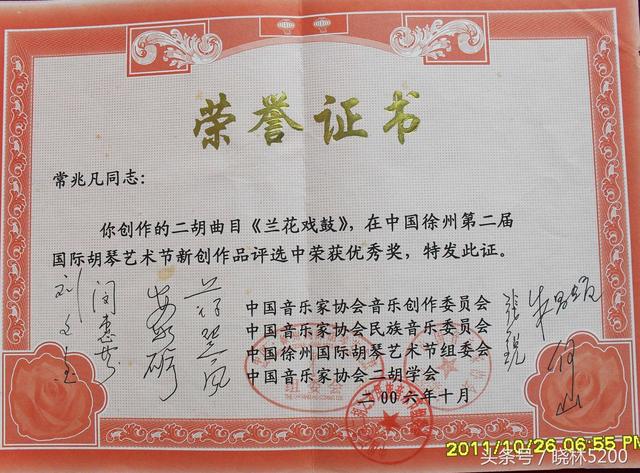 荣誉证书
常兆凡同志：
你创作的二胡曲目《兰花戏鼓》，在中国徐州第二届
国际胡琴艺术节新创作品评选中荣获优秀奖，特发此证。
中国音乐家协会音乐创作委员会
中国音乐家协会民族音乐委员会
中国徐州国际胡琴艺术节组委会
中国音乐家协会二胡学会
二00六年十月
刘文金
闵惠芬
2011/10/26 06:55 PM
头条号 / 晓林5200